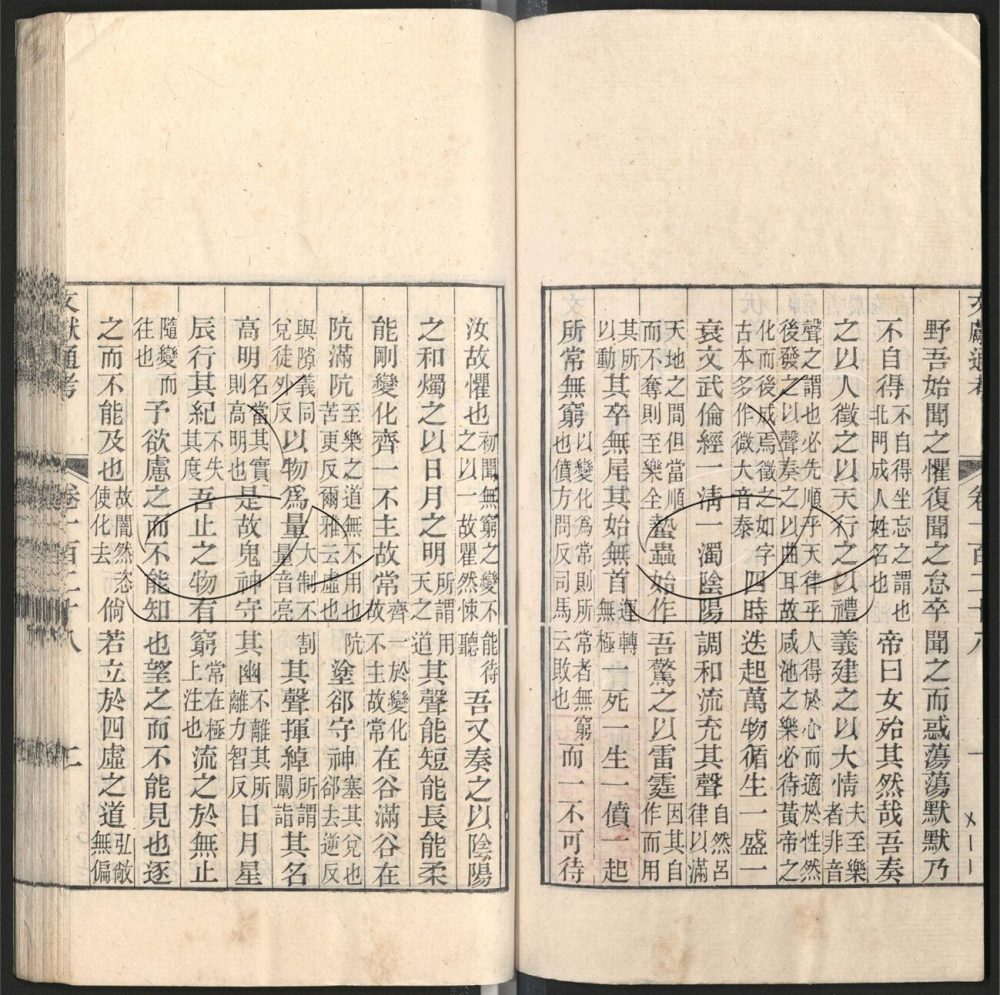 文獻通考 卷一百二十八
野吾始聞之懼復聞之怠卒聞之而惑蕩蕩默默乃
不自得不自得坐忘之謂也北門成人姓名也帝曰女殆其然哉吾奏
之以人徵之以天行之以禮義建之以大情夫至樂者非音
聲之謂也必先順乎天律乎人得於心而適於性然後發之以聲奏之以曲耳故咸池之樂必待黃帝之
化而後成焉徵之如字古本多作徵大音泰四時迭起萬物循生一盛一
衰文武倫經一清一濁陰陽調和流充其聲自然呂律以滿
天地之間但當順而不奪則至樂全蟄蟲始作吾驚之以雷霆因其自作而用
其所以動其卒無尾其始無首運轉無極一死一生一僨一起
所常無窮以變化爲常則所常者無窮也僨方問反司馬云敗也而一不可待
汝故懼也初聞無窮之變不能待之以一故瞿然悚聽吾又奏之以陰陽
之和燭之以日月之明所謂用天之道其聲能短能長能柔
能剛變化齊一不主故常齊一於變化故不主故常在谷滿谷在
阬滿阬至樂之道無不用也阬苦更反爾雅云虛也塗郤守神塞其兌也郤去逆反
與隙義同兌徒外反以物爲量大制不割量音亮其聲揮綽所謂闡諧其名
高明名當其實則高明也是故鬼神守其幽不離其所離力智反日月星
辰行其紀不失其度吾止之物有窮常在極上注也流之於無止
隨變而往也予欲慮之而不能知也望之而不能見也逐
之而不能及也故闇然恣使化去儻若立於四虛之道弘敞無偏
文獻通考 卷一百二十八 七